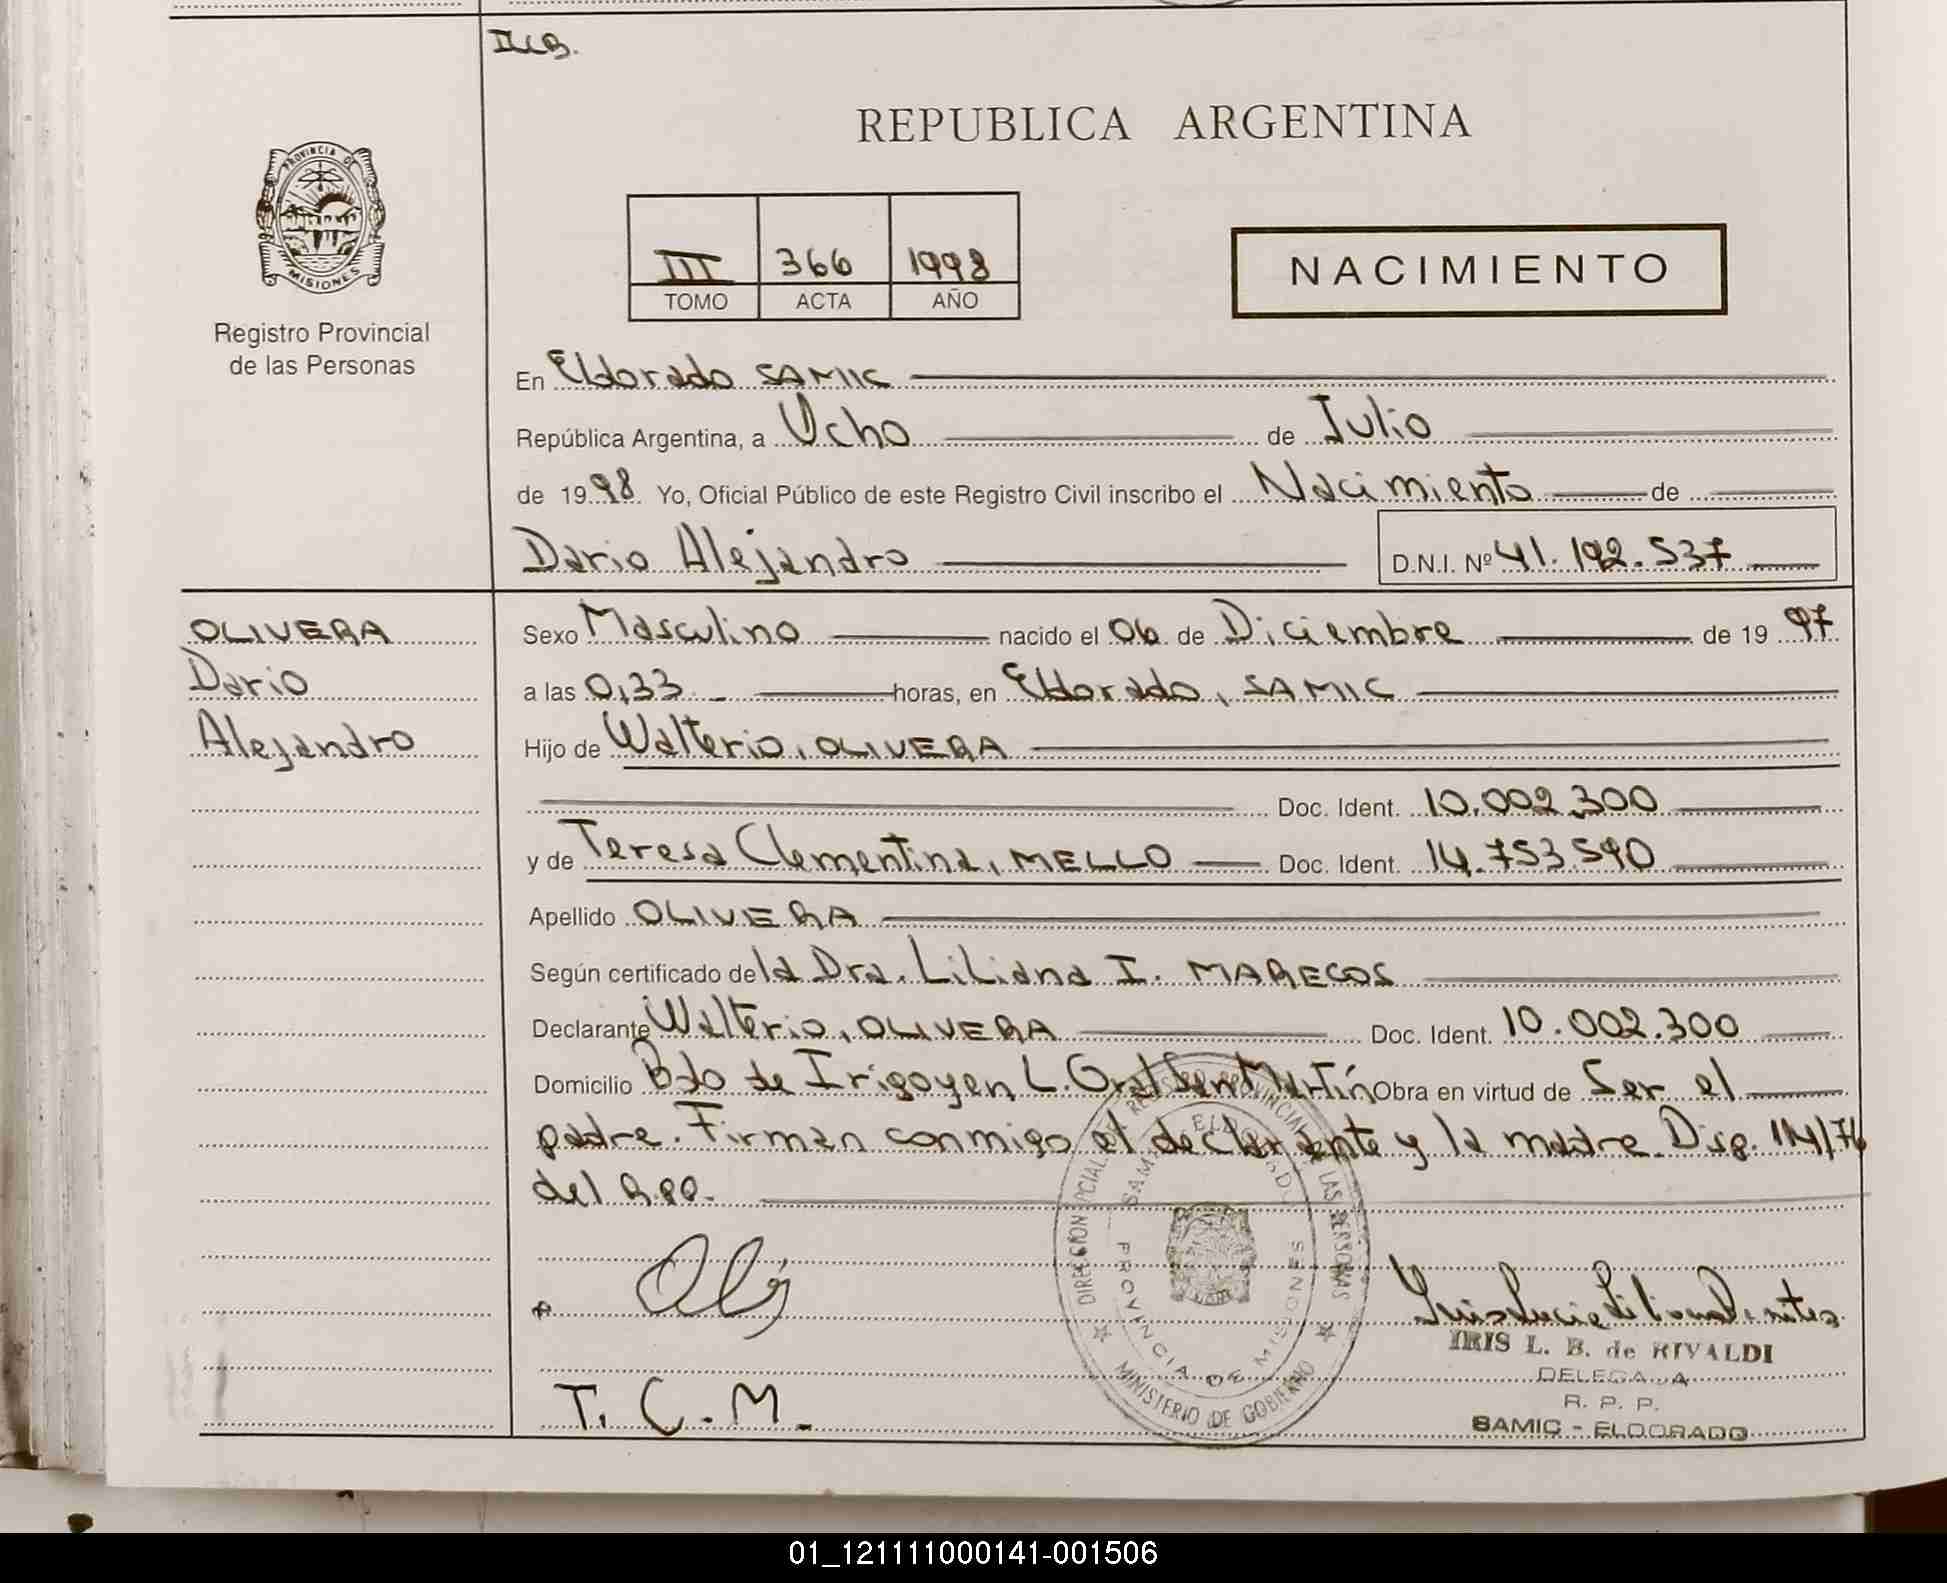 ILLB.
PROVINCIA DE
MISIONES
Registro Provincial
de las Personas
REPUBLICA ARGENTINA
III 366 1998
TOMO ACTA AÑO
NACIMIENTO
En Eldorado SAMIC
República Argentina, a Ocho de Julio
de 1998 Yo, Oficial Público de este Registro Civil inscribo el Nacimiento de
Dario Alejandro D.N.I. Nº 41.192.537
OLIVERA
Dario
Alejandro
Sexo Masculino nacido el 06 de Diciembre de 1997
a las 0,33 horas, en Eldorado, SAMIC
Hijo de Walterio, OLIVERA
Doc. Ident. 10.002.300
y de Teresa Clementina, MELLO Doc. Ident. 14.753.590
Apellido OLIVERA
Según certificado de la Dra. Liliana I. MARECOS
Declarante Walterio, OLIVERA Doc. Ident. 10.002.300
Domicilio Bdo de Irigoyen L. Gral San Martín Obra en virtud de Ser el
padre. Firman conmigo el declarante y la madre. Disp. 114/76
del R.P.P.
DIRECCION REGISTRO PROVINCIAL DE LAS PERSONAS
MINISTERIO DE GOBIERNO
SAMIC ELDORADO
PROVINCIA DE MISIONES
T. C. M.
IRIS L. B. de RIVALDI
DELEGADA
R. P. P.
SAMIC - ELDORADO
01_121111000141-001506